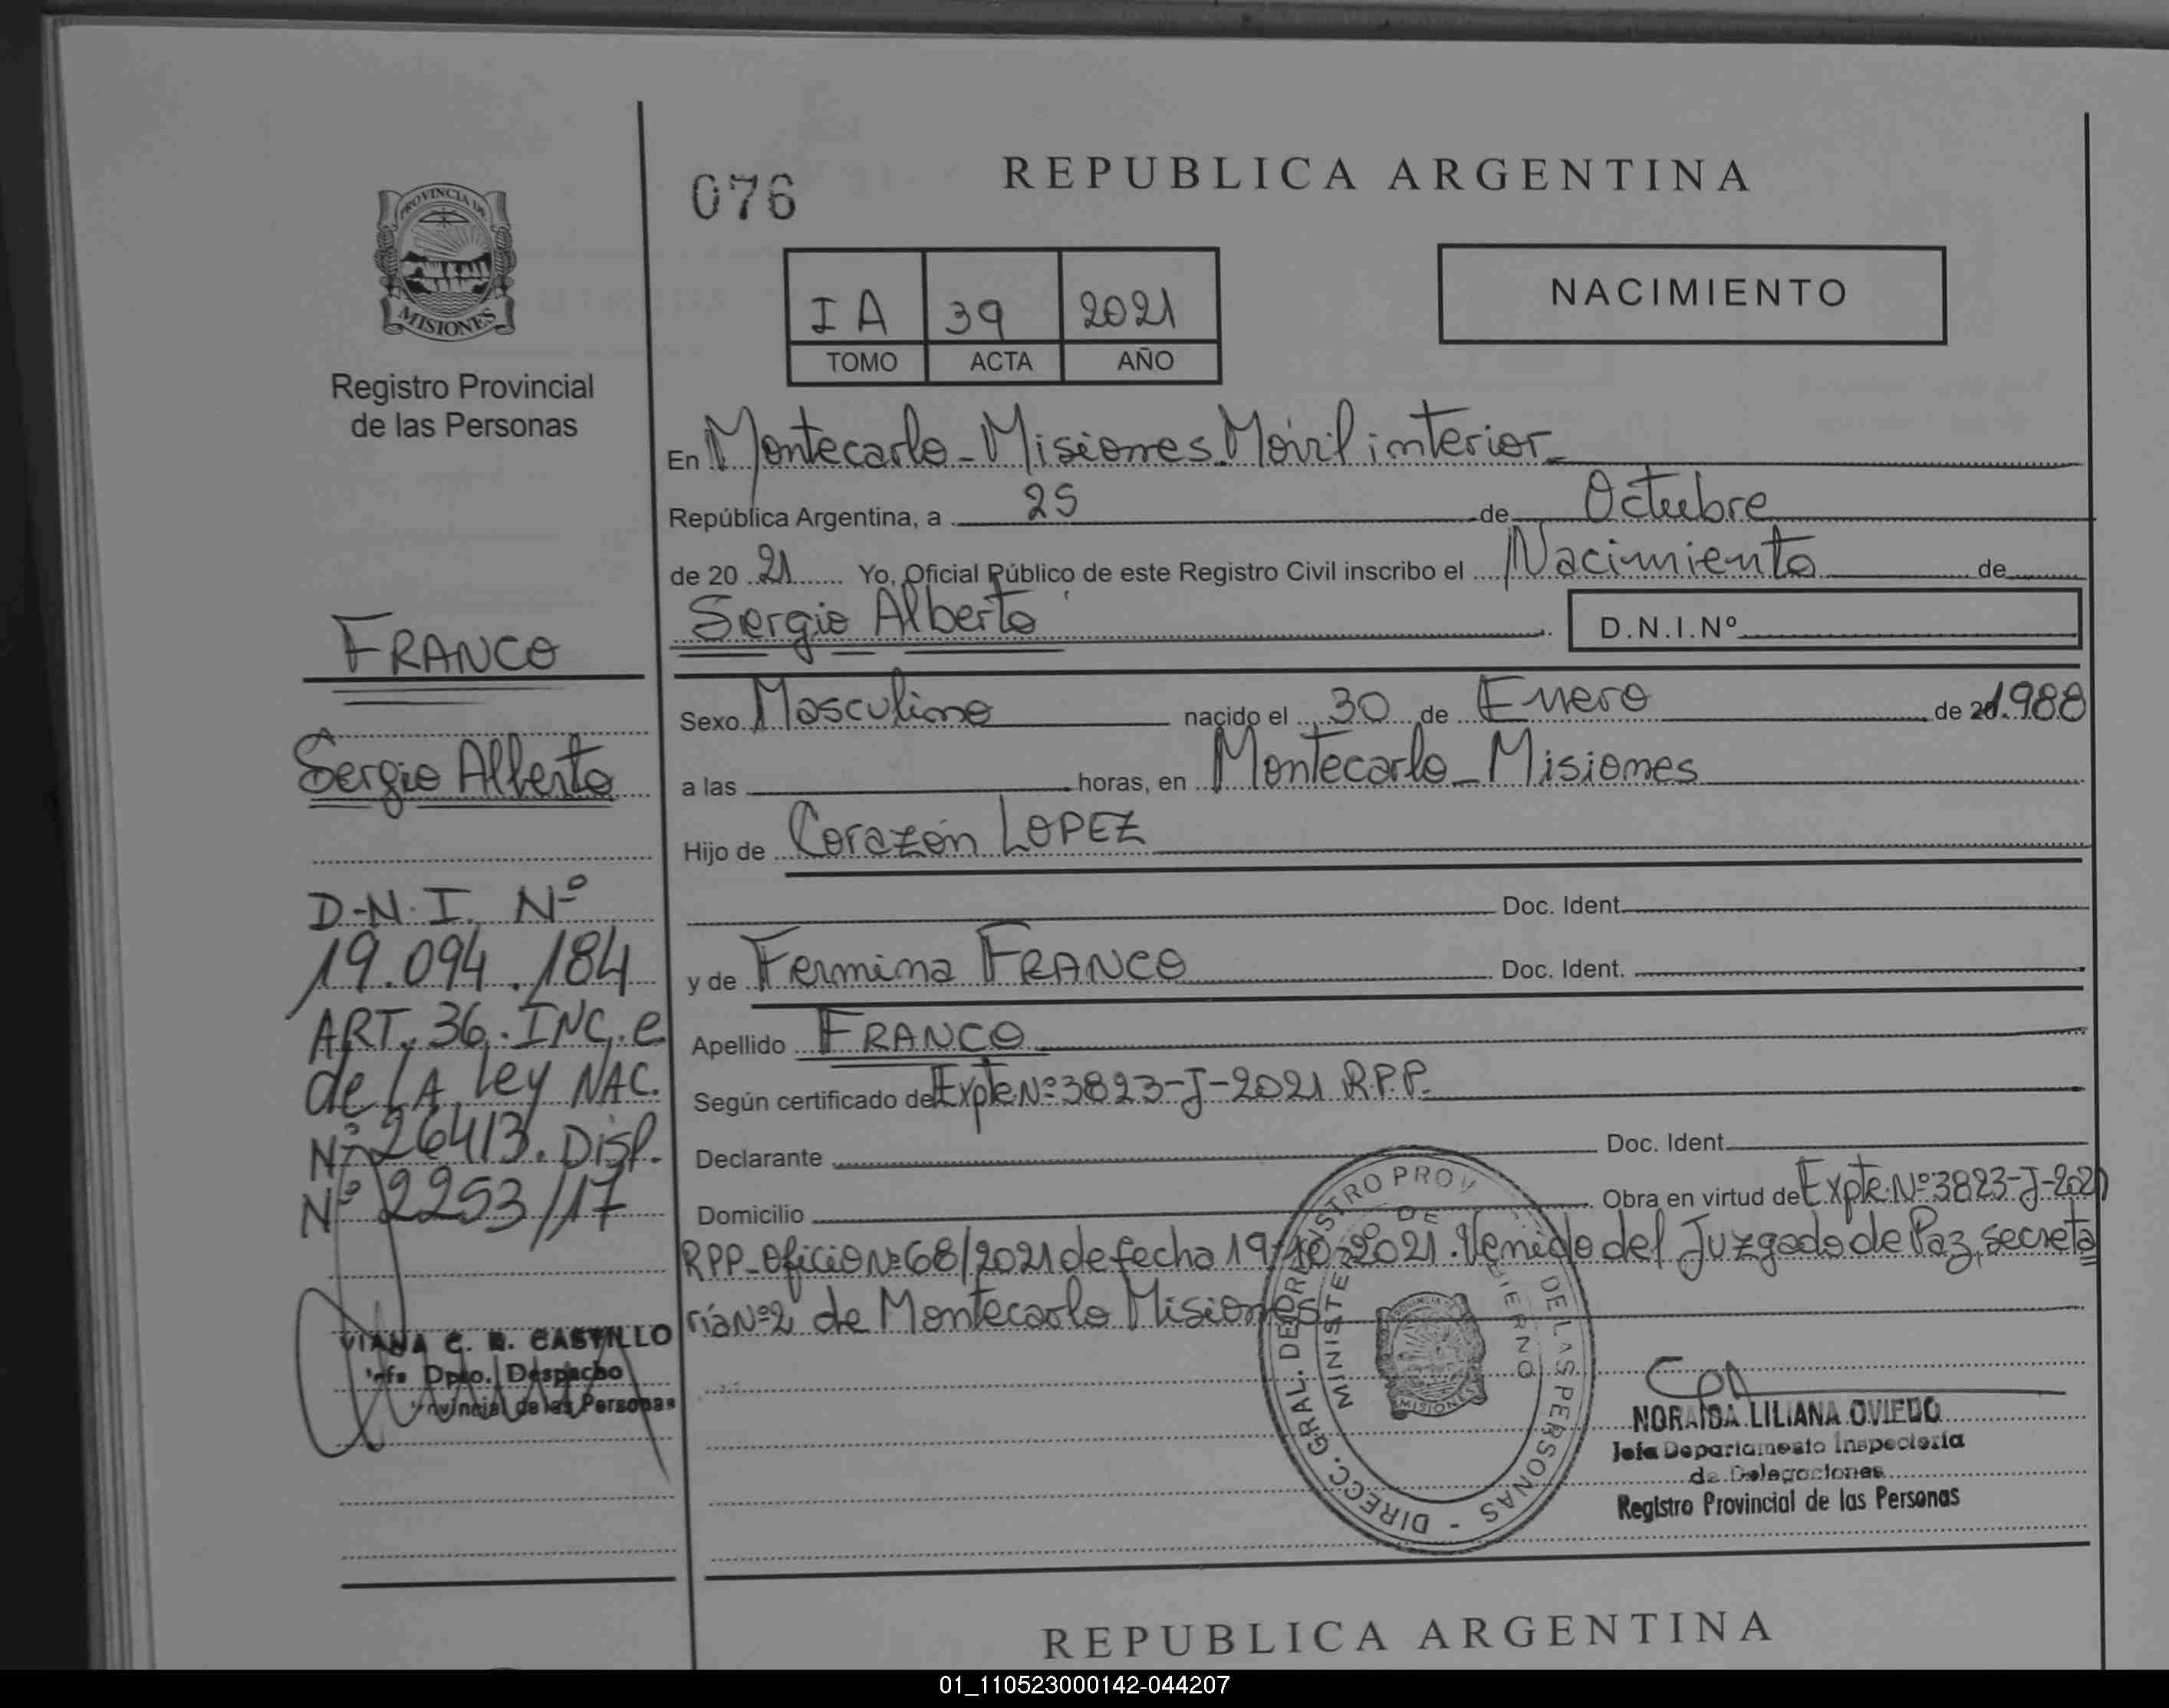 REPUBLICA ARGENTINA
076
PROVINCIA DE
MISIONES
Registro Provincial
de las Personas
IA 39 2021
TOMO ACTA AÑO
NACIMIENTO
En Montecarlo - Misiones Móvil interior
República Argentina, a 25 de Octubre
de 20 21 Yo, Oficial Público de este Registro Civil inscribo el Nacimiento de
Sergio Alberto D.N.I.Nº
Sexo Masculino nacido el 30 de Enero de 1.988
a las horas, en Montecarlo - Misiones
Hijo de Corazón LOPEZ
Doc. Ident.
y de Fermina FRANCO Doc. Ident.
Apellido FRANCO
Según certificado de Expte Nº 3823-J-2021 R.P.P.
Declarante Doc. Ident.
Domicilio Obra en virtud de Expte. Nº 3823-J-2021
RPP_Oficio Nº 68/2021 de fecha 19-10-2021. Venido del Juzgado de Paz, secreta
ría Nº 2 de Montecarlo Misiones
FRANCO
Sergio Alberto
D.N.I. Nº
19.094.184
ART. 36. INC. e
de LA Ley NAC.
Nº 26413. Disp.
Nº 2253/17
C. R. CASTILLO
Dpto. Despacho
de las Personas
DIRECC. GRAL. DEL REGISTRO PROV. DE LAS PERSONAS -
MINISTERIO DE GOBIERNO
MISIONES
NORAIDA LILIANA OVIEDO
Jefa Departamento Inspectoría
de Delegaciones
Registro Provincial de las Personas
REPUBLICA ARGENTINA
01_110523000142-044207